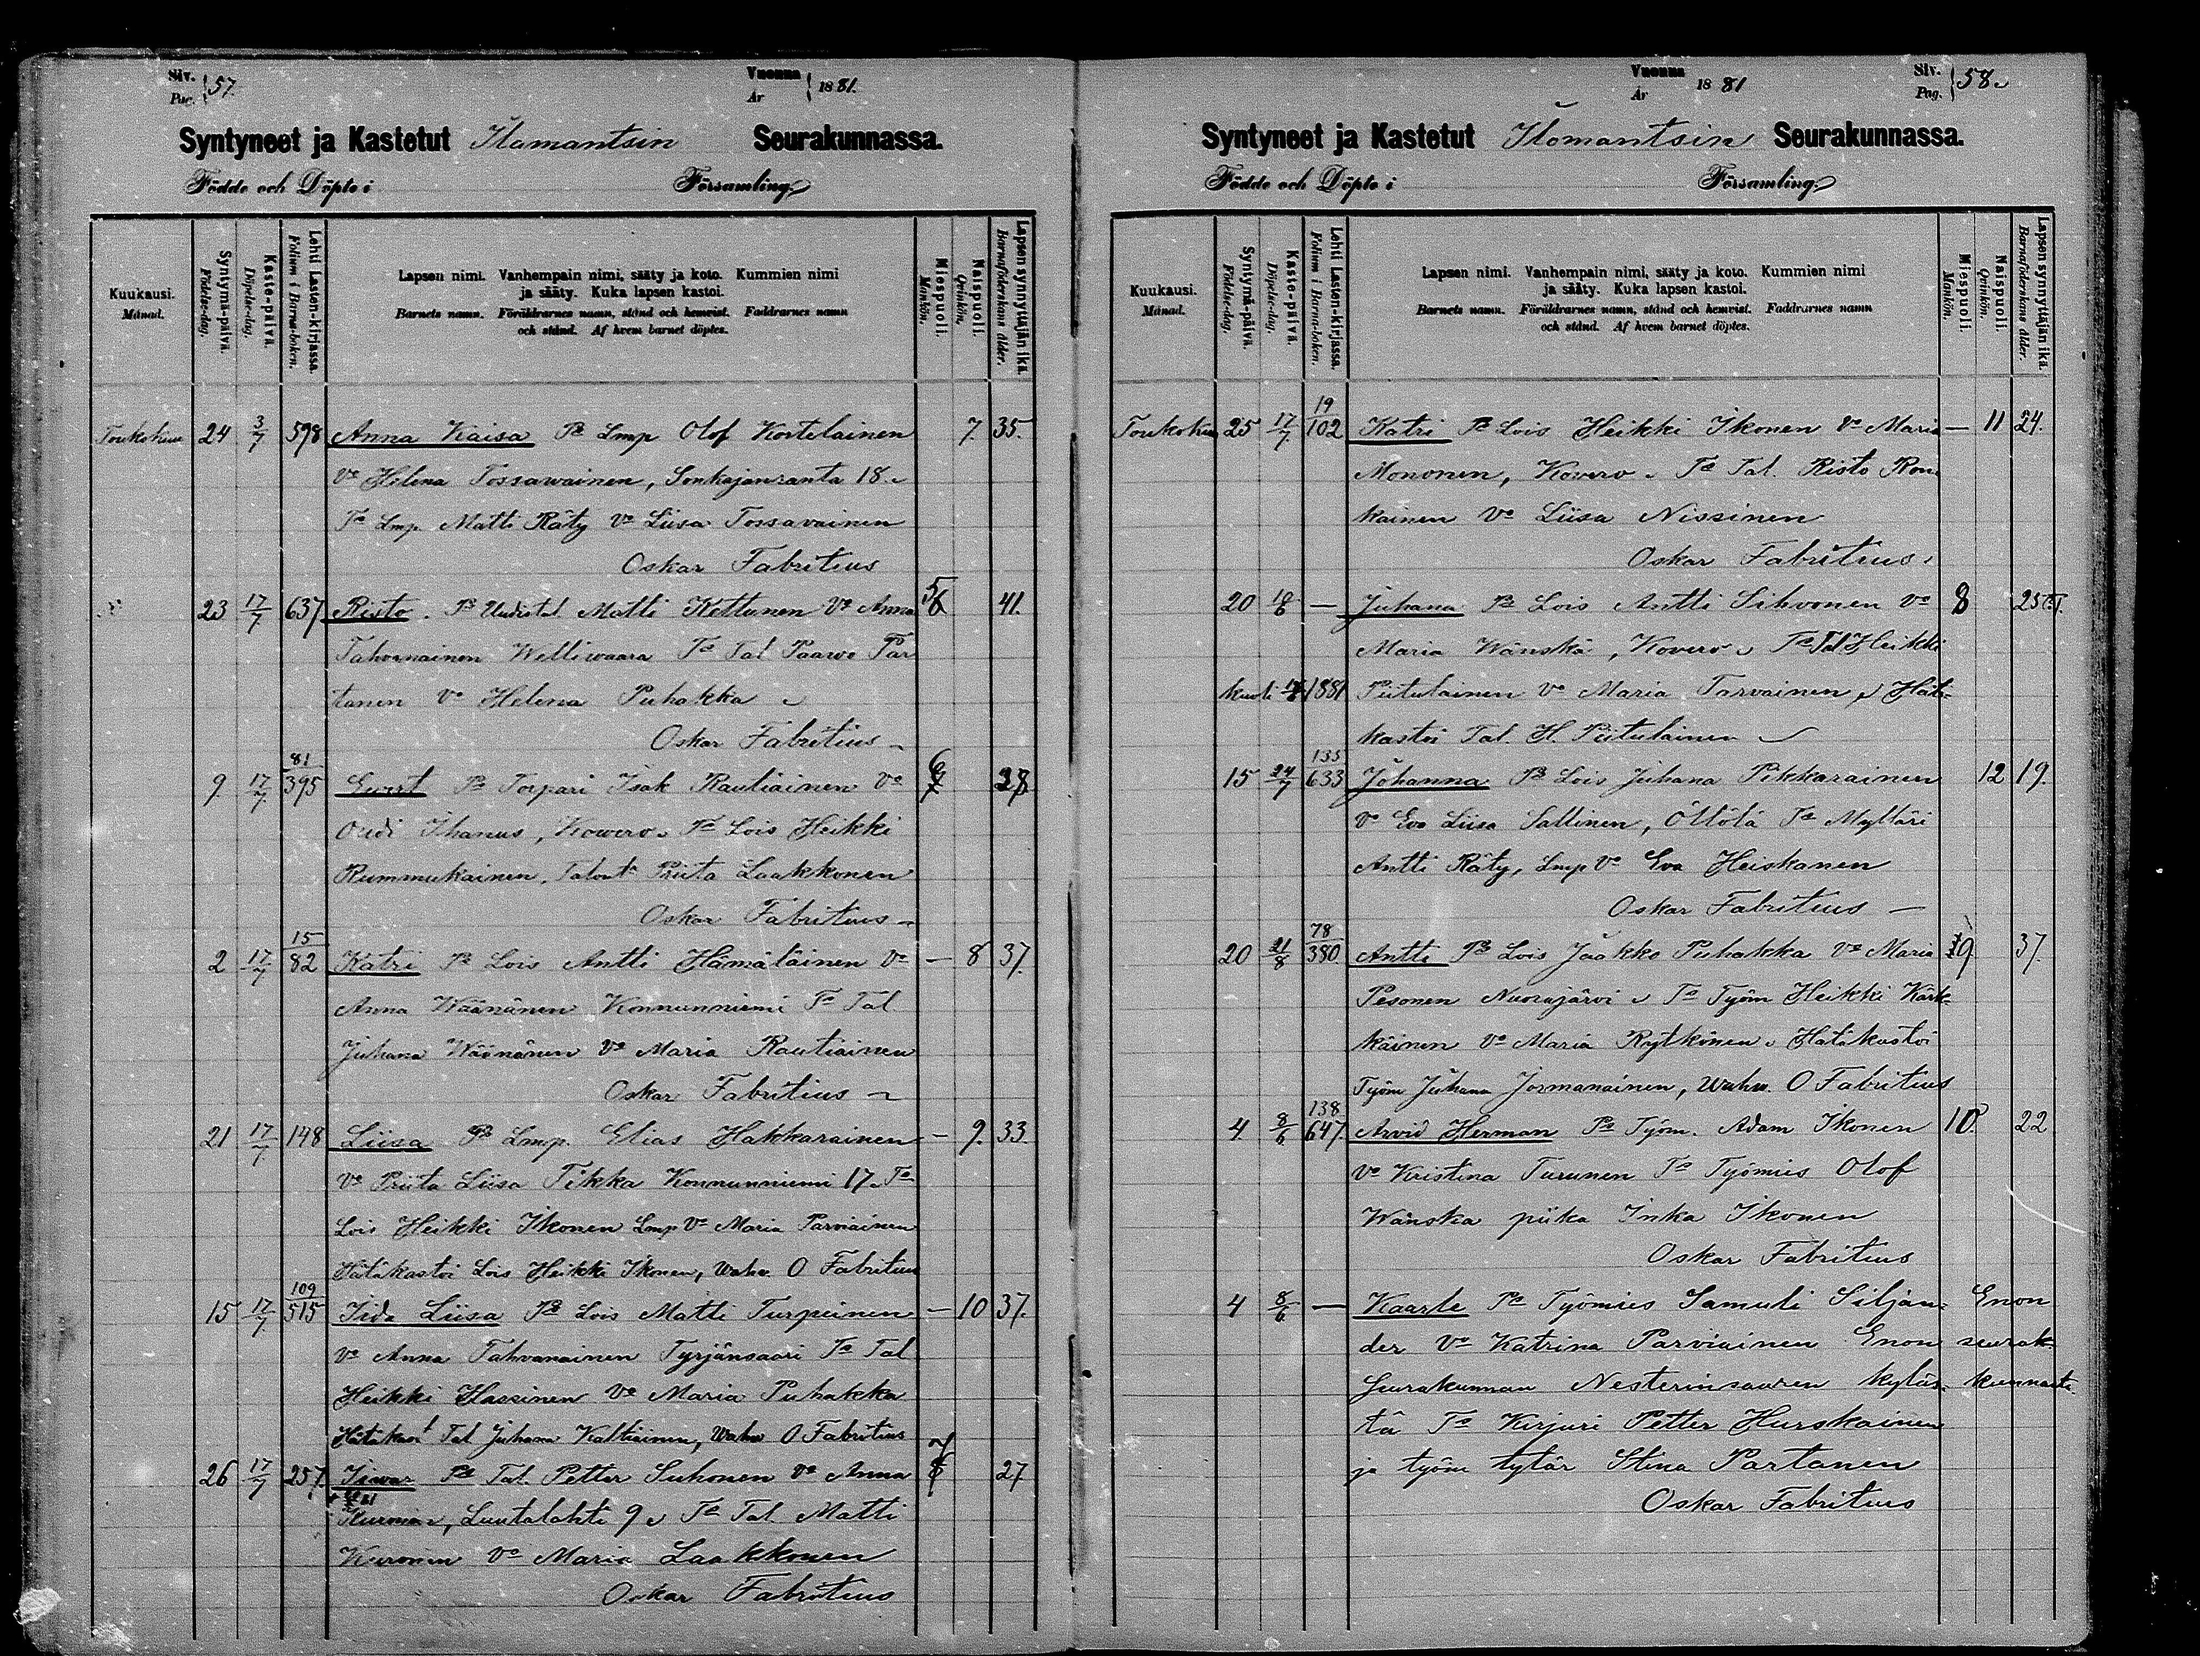 Siv. Pag. 57. Vuonna År 1881.
Syntyneet ja Kastetut Ilomantsin Seurakunnassa.
Födde och Döpte i Församling.
Kuukausi. Månad.
Syntymä-päivä. Födelse-dag.
Kaste-päivä. Döpelse-dag.
Lehti Lasten-kirjassa. Folium i Barna-boken.
Lapsen nimi. Vanhempain nimi, sääty ja koto. Kummien nimi
ja sääty. Kuka lapsen kastoi.
Barnets namn. Föräldrarnes namn, stånd och hemvist. Faddrarnes namn
och stånd. Af hvem barnet döptes.
Miespuoli. Mankön.
Naispuoli. Qvinkön.
Lapsen synnyttäjän ikä. Barnaföderskans ålder.
Toukokuu 24 3/7 598 Anna Kaisa Ps Lmp Olof Kortelainen 7. 35.
Vo Helena Tossawainen, Sonkajanranta 18.
Ts Lmp. Matti Räty Vo Liisa Tossavainen
Oskar Fabritius
23 17/7 637 Risto. Ps Uudistal Matti Kettunen Vo Anna 5 41.
Tahvanainen Welliwaara Ts Tal Paawo Par
tanen Vo Helena Puhakka
Oskar Fabritius
9. 17/7 81/395 Ewert Ps Torpari Isak Rautiainen Vo 6 28
Ihanus, Kowero. Ts Lois Heikki
Rummukainen, Priita Laakkonen
Oskar Fabritius
2 17/7 15/82 Katri Ps Lois Antti Hämäläinen Vo — 8 37.
Anna Wäänänen Konnunniemi Ts Tal.
Juhana Wäänänen Vo Maria Rautiainen
Oskar Fabritius
21 17/7 148 Liisa Ps Lmp. Elias Hakkarainen — 9. 33.
Vo Priita Liisa Tikka Konnunniemi 17. Ts
Lois Heikki Ikonen Lmp Vo Maria Parviainen
Hätäkastoi Lois Heikki Ikonen, Wahw. O Fabritius
15 17/7 109/515 Iida Liisa Ps Lois Matti Turpeinen — 10 37.
Vo Anna Tahvanainen Tyrjänsaari Ts Tal.
Heikki Hassinen Vo Maria Puhakka
Hätäkast Tal Juhana Kaltiainen, Wahw O Fabritius
26 17/7 257. Iiwar Ps Tal. Petter Suhonen Vo Anna 7 27
Kuronen, Luutalahti 9. Ts Tal. Matti
Kuronen Vo Maria Laakkonen
Oskar Fabritius
Vuonna År 1881 Siv. Pag. 58.
Syntyneet ja Kastetut Ilomantsin Seurakunnassa.
Födde och Döpte i Församling.
Kuukausi. Månad.
Syntymä-päivä. Födelse-dag.
Kaste-päivä. Döpelse-dag.
Lehti Lasten-kirjassa. Folium i Barna-boken.
Lapsen nimi. Vanhempain nimi, sääty ja koto. Kummien nimi
ja sääty. Kuka lapsen kastoi.
Barnets namn. Föräldrarnes namn, stånd och hemvist. Faddrarnes namn
och stånd. Af hvem barnet döptes.
Miespuoli. Mankön.
Naispuoli. Qvinkön.
Lapsen synnyttäjän ikä. Barnaföderskans ålder.
Toukokuu 25 17/7 19/102 Katri Ps Lois Heikki Ikonen Vo Maria — 11 24.
Mononen, Kovero. Ts Tal. Risto Ron
kainen Vo Liisa Nissinen
Oskar Fabritius.
20 — Juhana Ps Lois Antti Sihvonen Vo 8 25
Maria Wänskä, Kovero. Ts Tal Heikki
kuoli 1881 Piitulainen Vo Maria Tarvainen, Hätä-
kastoi Tal. H. Piitulainen
15 24/7 135/633 Johanna Ps Lois Juhana Pikkarainen 12 19.
Vo Eva Liisa Sallinen, Öllölä Ts Mylläri
Antti Räty, Lmp Vo Eva Heiskanen
Oskar Fabritius —
20 21/8 78/380. Antti Ps Lois Jaakko Puhakka Vo Maria 9 37.
Pesonen Nuorajärvi. Ts Työm Heikki Kärk-
käinen Vo Maria Rytkönen. Hätäkastoi
Työm Juhana Jormanainen, Wahw. O Fabritius
4 8/6 138/647. Arvid Herman Ps Työm. Adam Ikonen 10. 22
Vo Kristina Turunen Ts Työmies Olof
Wänska piika Inka Ikonen
Oskar Fabritius
4 8/6 — Kaarle Ps Työmies Samuli Siljan- Enon
der Vo Katrina Parviainen Enon seurak-
Seurakunnan Nesterinsaaren kyläs- kunnasta.
tä Ts Kirjuri Petter Hurskainen
ja työm tytär Stina Partanen
Oskar Fabritius